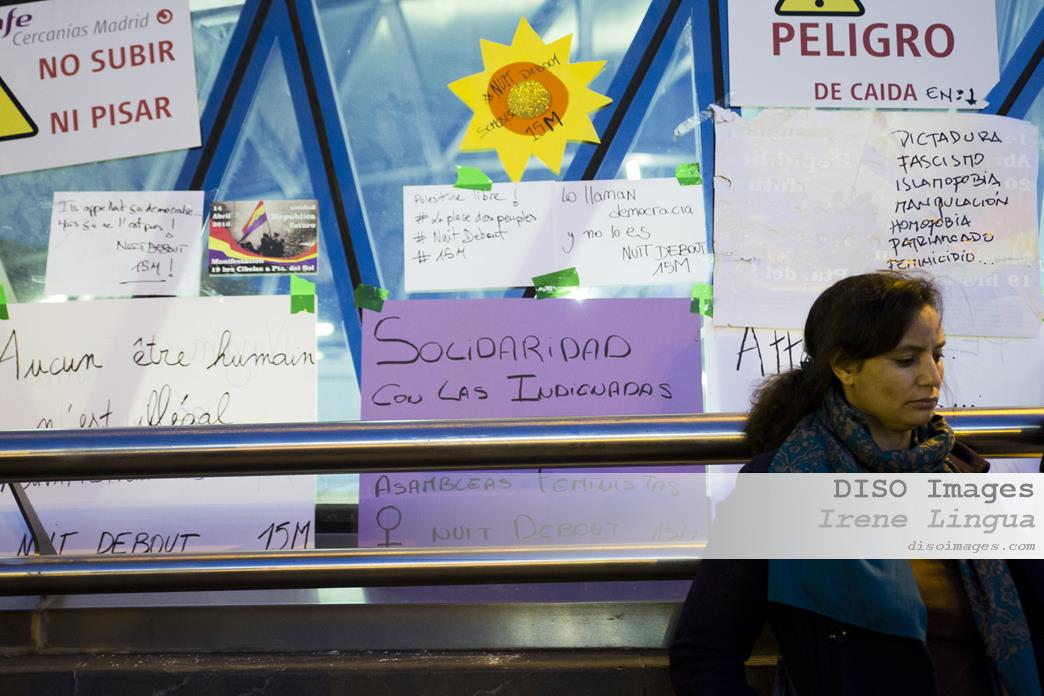 Cercanías Madrid
NO SUBIR
NI PISAR
NUIT DEBOUT
15M
PELIGRO
DE CAIDA EN:
DICTADURA
FASCISMO
ISLAMOFOBIA
MANIPULACIÓN
HOMOFOBIA
PATRIARCADO
FEMINICIDIO...
Ils appellent ça democratie
NUIT DEBOUT
15M!
14
Abril
2016
República
futuro
Manifestación
19 hrs Cibeles a Pta. del Sol
Palestine libre!
#La place des peuples
#Nuit Debout
#15M
Lo llaman
democracia
y no lo es
NUIT DEBOUT
15M
Aucun être humain
n'est illégal
NUIT DEBOUT 15M
SOLIDARIDAD
CON LAS INDIGNADAS
ASAMBLEAS FEMINISTAS
♀ NUIT DEBOUT 15M
DISO Images
Irene Lingua
disoimages.com